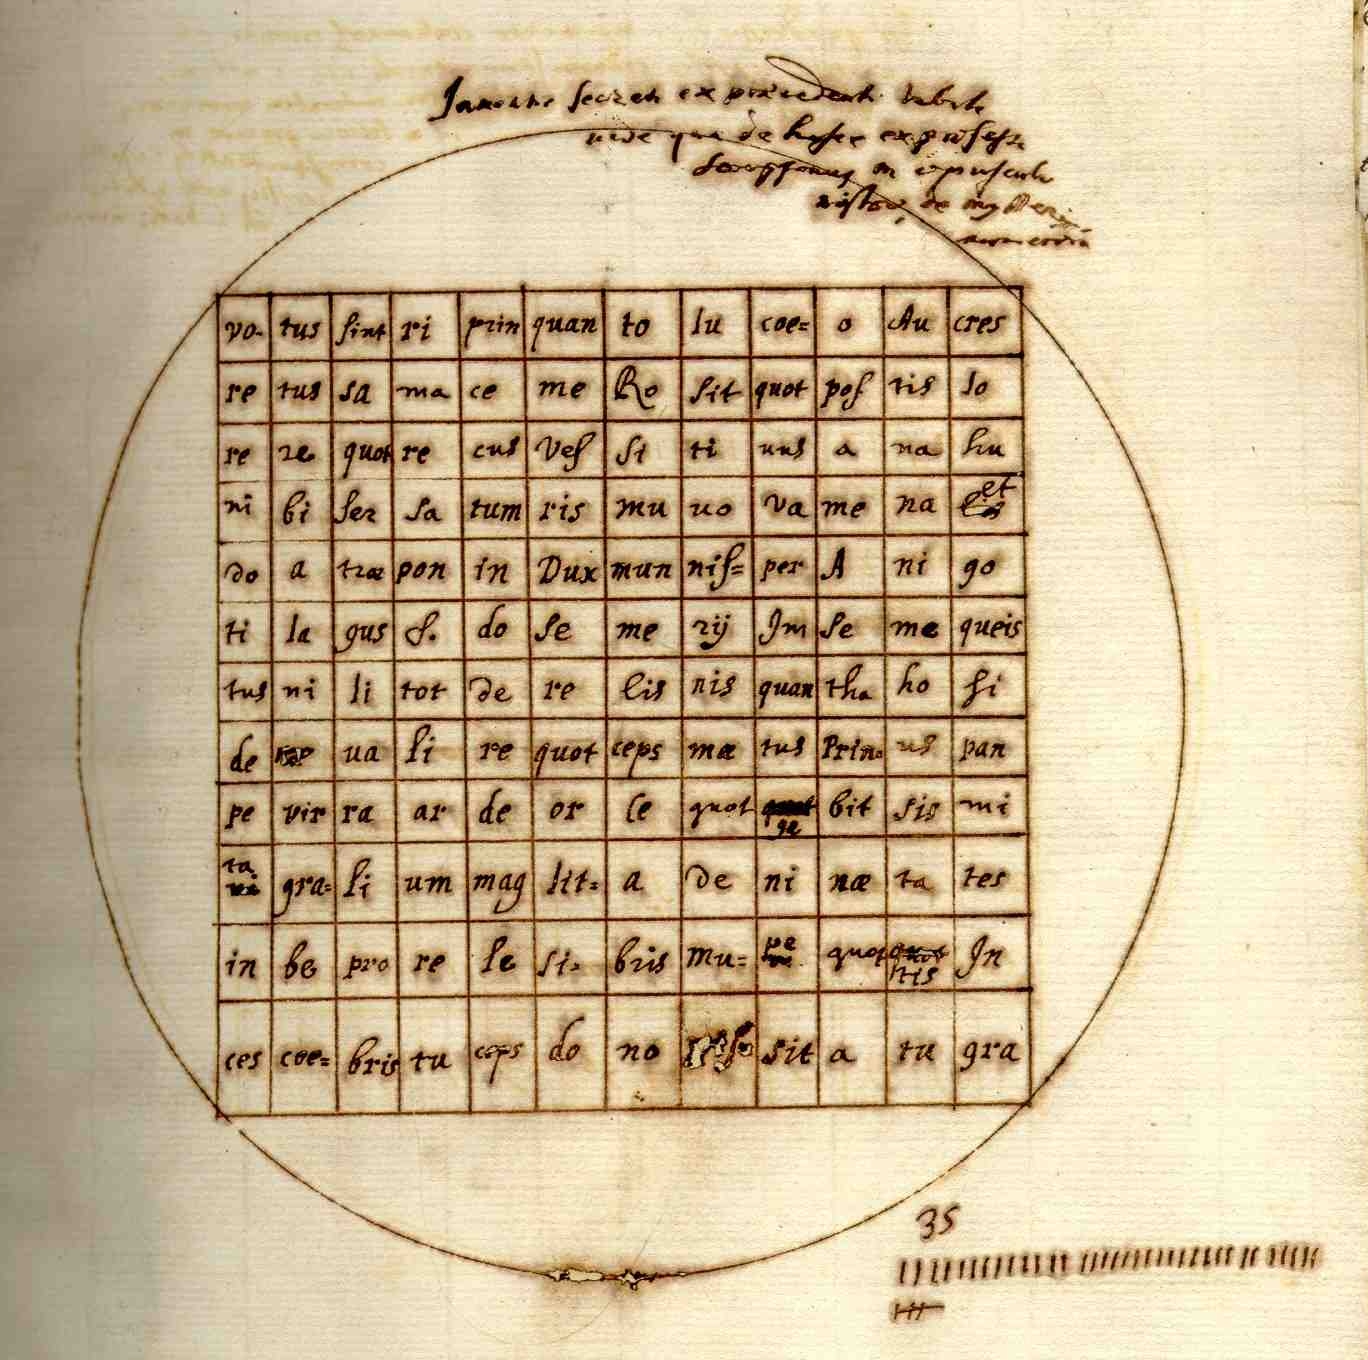 secreti ex præcedenti tabula
vide quæ de hysce ex professo
scripsimus in opusculo
nostro, de mysterijs
vo- tus sint ri prin quan to lu coe= o Au cres
re tus sa ma ce me Ro sit quot pos tis lo
re re quot re cus Ves si ti uus a na hu
ni bi ser sa tum ris mu uo va me na et
do a træ pon in Dux mun nis= per A ni go
ti la gus do se me rij Im se me queis
tus ni li tot de re lis nis quan tha ho si
de ua li re quot ceps mæ tus Prin= us pan
pe vir ra ar de or le quot ge bit sis mi
ta gra= li um mag lit= a de ni næ ta tes
in be pro re le si= bris mu= pe quot tis In
ces coe= bris tu ceps do no sit a tu gra
35